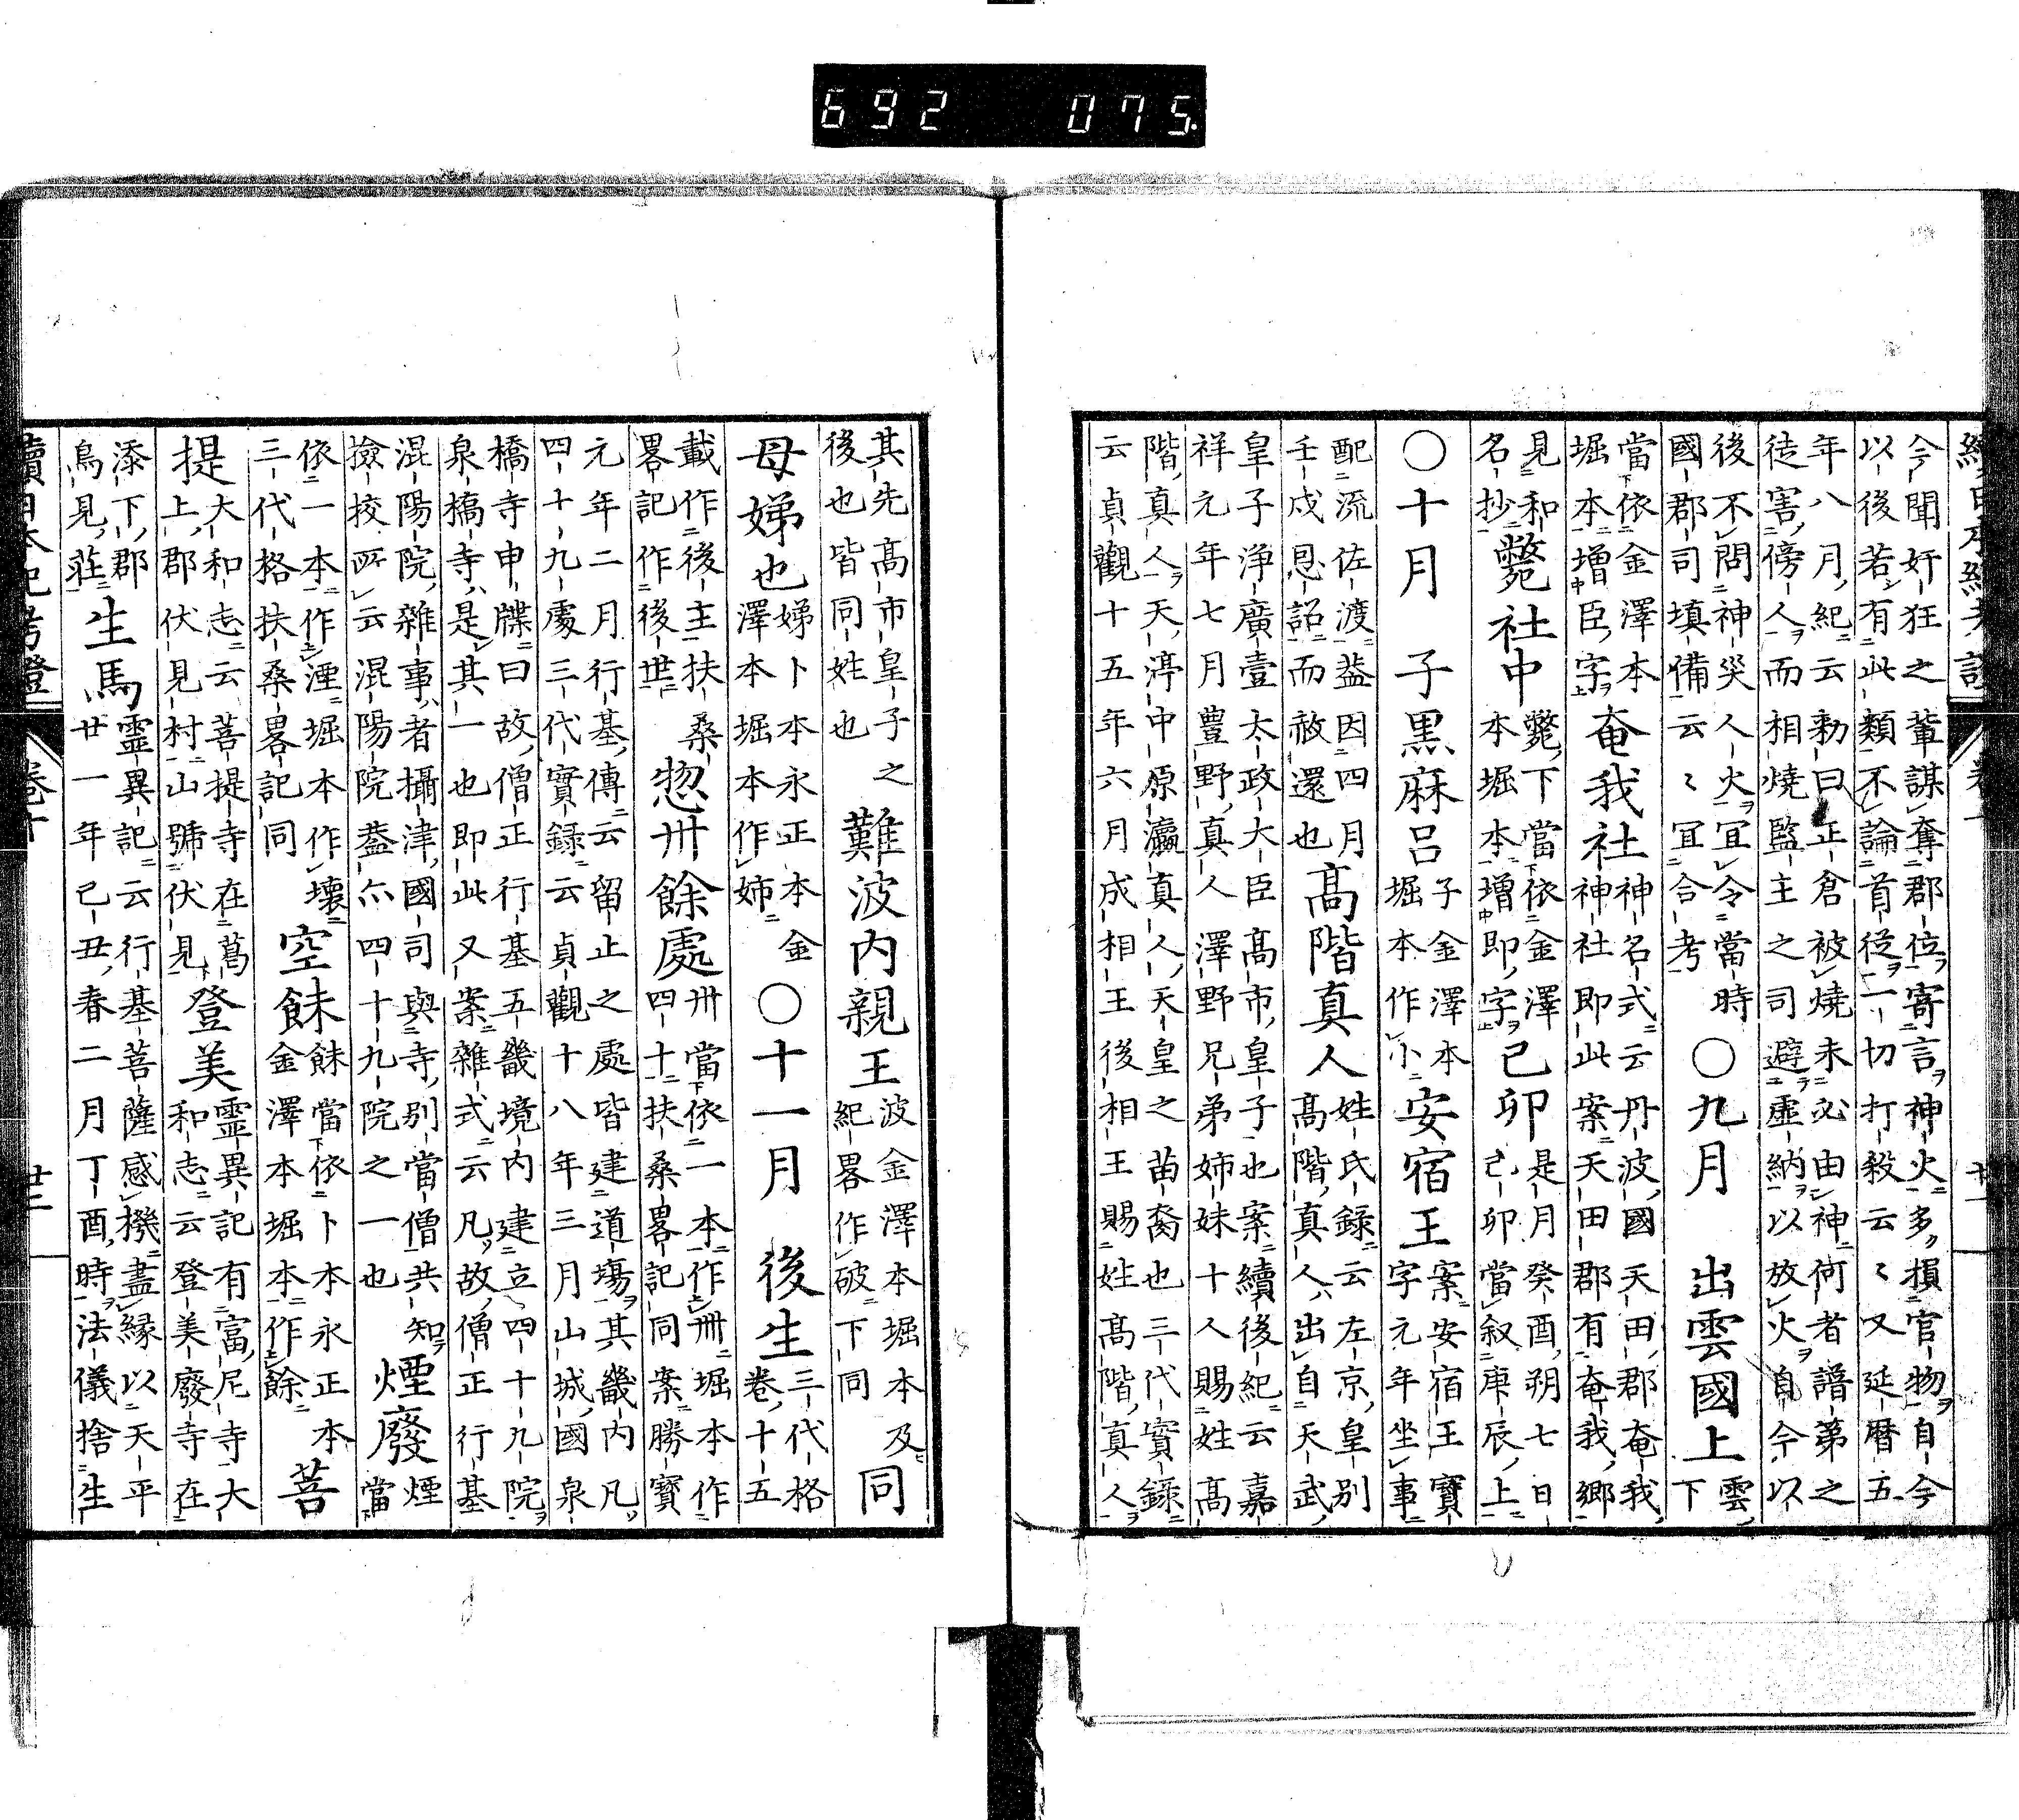 692 075.
今聞奸狂之輩謀奪郡位寄言神火多損官物自今
以後若有此類不論首從一切打殺云〻又延暦五
年八月紀云勅曰正倉被燒未必由神何者譜第之
徒害傍人而相燒監主之司避虛納以放火自今以
後不問神災人火宜令當時
國郡司填備云〻冝合考
〇九月 出雲國上
雲下
當依金澤本
堀本增臣字
奄我社
神名式云丹波國天田郡奄我
神社即此案天田郡有奄我鄉
見和
名抄
斃社中
斃下當依金澤
本堀本增即字
己卯
是月癸酉朔七日
己卯當叙庚辰上
〇十月 子黒麻呂
子金澤本
堀本作小
安宿王
案安宿王寶
字元年坐事
配流佐渡葢因四月
壬戌恩詔而赦還也
髙階真人
姓氏錄云左京皇別
髙階真人出自天武
皇子淨廣壹太政大臣髙市皇子也案續後紀云嘉
祥元年七月豊野真人澤野兄弟姉妹十人賜姓髙
階真人天渟中原瀛真人天皇之苗裔也三代實錄
云貞觀十五年六月成相王後相王賜姓髙階真人
其先髙市皇子之
後也皆同姓也
難波内親王
波金澤本堀本及
紀畧作破下同
同
母娣也
娣卜本永正本金
澤本堀本作姉
〇十一月 後生
三代格
卷十五
載作後主扶桑
畧記作後世
惣卅餘處
卅當依一本作卌堀本作
四十扶桑畧記同案勝寶
元年二月行基傳云留止之處皆建道塲其畿内凡
四十九處三代實録云貞觀十八年三月山城國泉
橋寺申牒曰故僧正行基五畿境内建立四十九院
泉橋寺是其一也即此又案雜式云凡故僧正行基
混陽院雜事者攝津國司與寺別當僧共知
撿挍所云混陽院葢亦四十九院之一也
煙廢
煙
當
依一本作湮堀本作壞
三代格扶桑畧記同
空餗
餗當依卜本永正本
金澤本堀本作餘
菩
提
大和志云菩提寺在葛
上郡伏見村山號伏見
登美
靈異記有富尼寺大
和志云登美廢寺在
添下郡
鳥見莊
生馬
靈異記云行基菩薩感機盡縁以天平
廿一年己丑春二月丁酉時法儀捨生
續日本紀考證
卷十
廿二